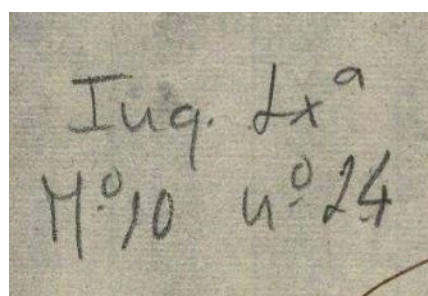 Inq. Lxª
Mº.10 nº 24